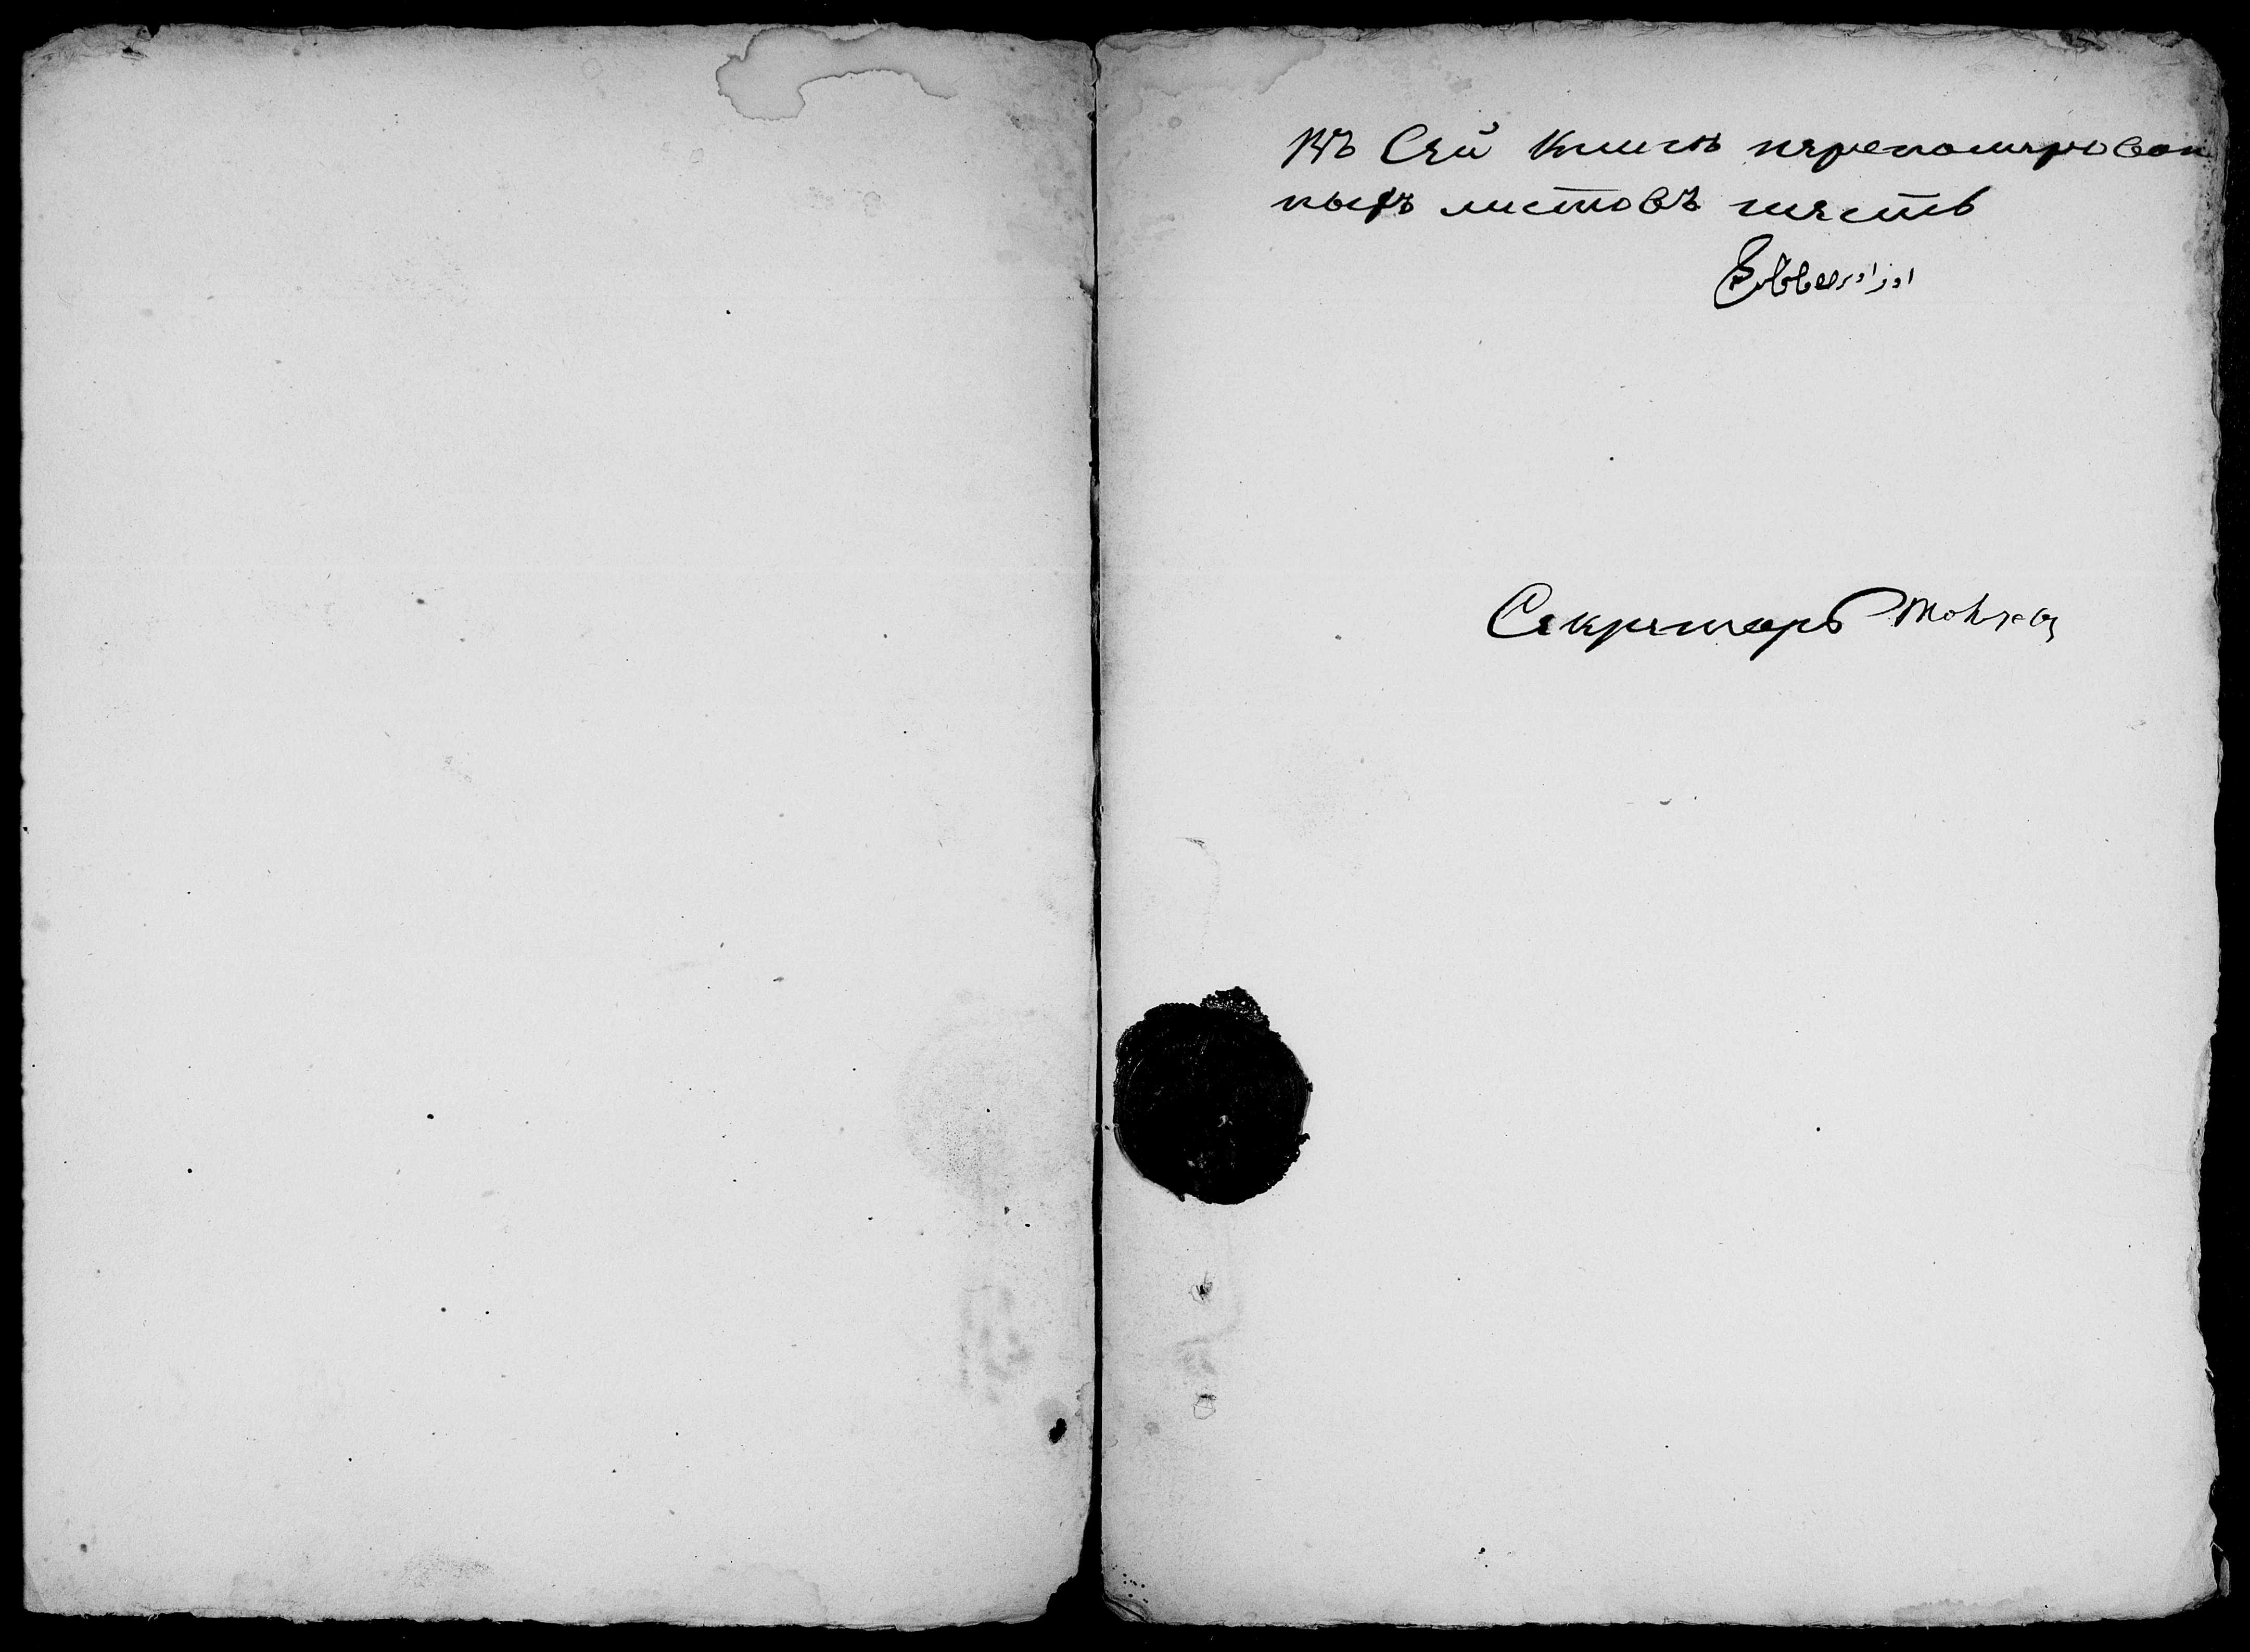 Въ Сей Книгѣ переномерован
ныхъ листовъ шесть
Секретарь